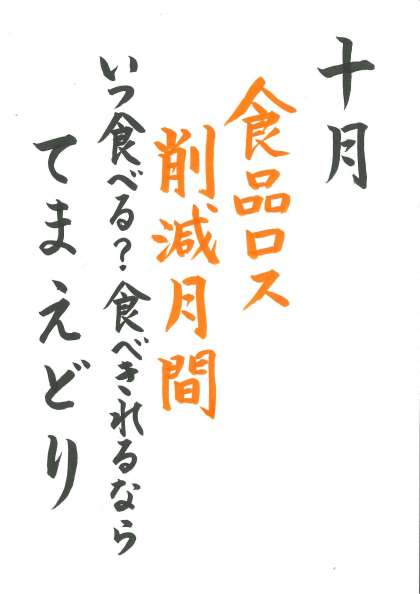 十月
食品ロス
削減月間
いつ食べる？食べきれるなら
てまえどり